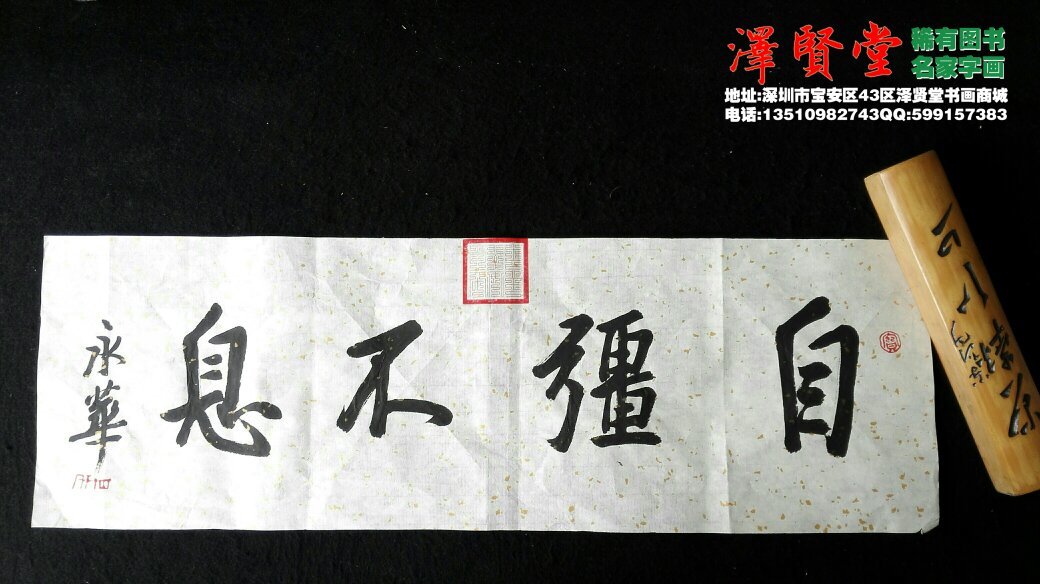 澤賢堂
稀有图书
名家字画
地址:深圳市宝安区43区泽贤堂书画商城
电话:13510982743QQ:599157383
自彊不息
永華